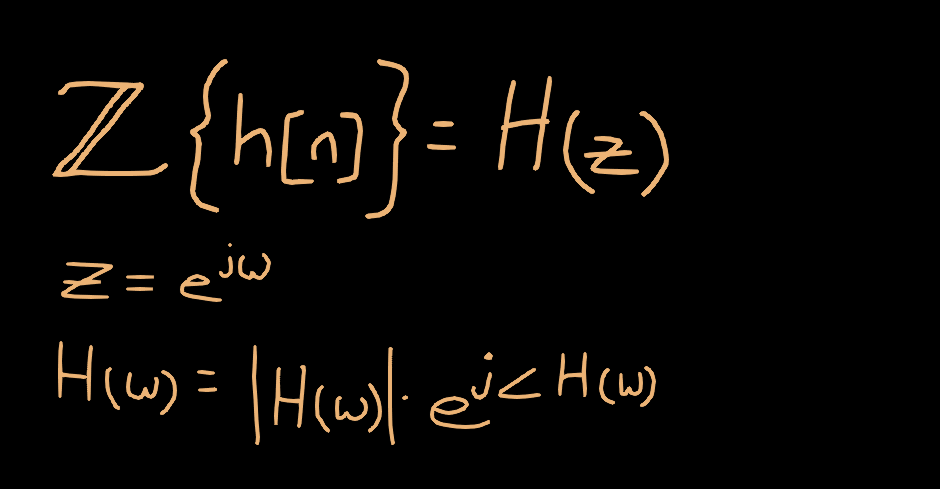 ℤ{h[n]} = H(z)
z = e^{jω}
H(ω) = |H(ω)| · e^{j∠H(ω)}